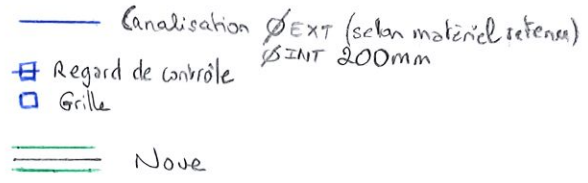 Canalisation Ø EXT (selon matériel retenu)
Ø INT 200mm
Regard de contrôle
Grille
Noue